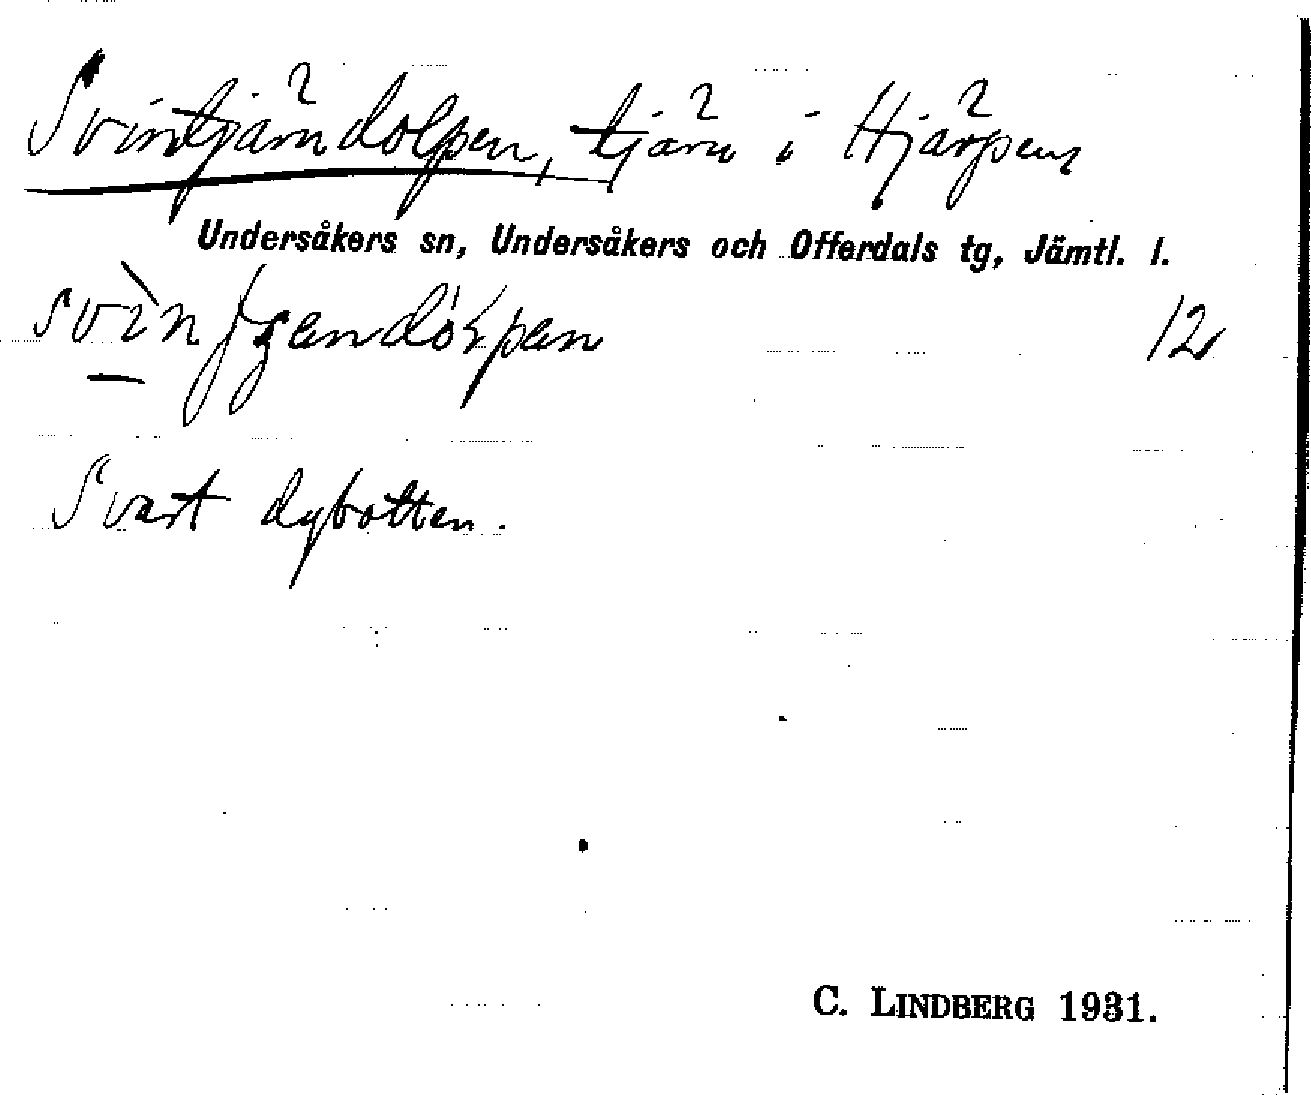 Svintjärndolpen, tjärn i Hjärpens
Undersåkers sn, Undersåkers och Offerdals tg, Jämtl. l.
12
Svart dybotten.
C. LINDBERG 1931.